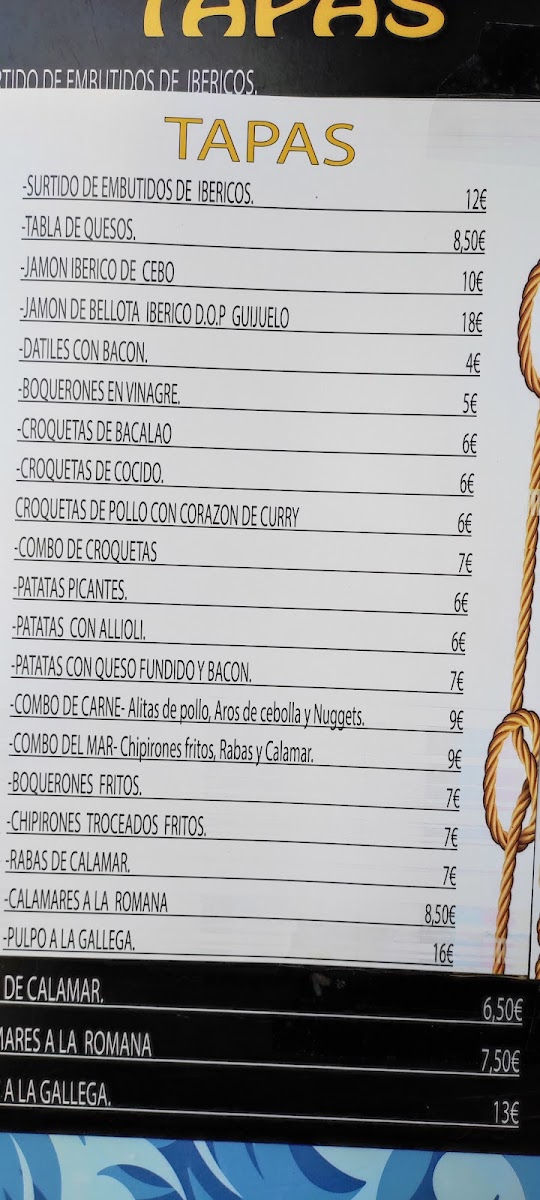 TAPAS
RTIDO DE EMBUTIDOS DE IBERICOS.
TAPAS
-SURTIDO DE EMBUTIDOS DE IBERICOS. 12€
-TABLA DE QUESOS. 8,50€
-JAMON IBERICO DE CEBO 10€
-JAMON DE BELLOTA IBERICO D.O.P GUIJUELO 18€
-DATILES CON BACON. 4€
-BOQUERONES EN VINAGRE. 5€
-CROQUETAS DE BACALAO 6€
-CROQUETAS DE COCIDO. 6€
CROQUETAS DE POLLO CON CORAZON DE CURRY 6€
-COMBO DE CROQUETAS 7€
-PATATAS PICANTES. 6€
-PATATAS CON ALLIOLI. 6€
-PATATAS CON QUESO FUNDIDO Y BACON. 7€
-COMBO DE CARNE- Alitas de pollo, Aros de cebolla y Nuggets. 9€
-COMBO DEL MAR- Chipirones fritos, Rabas y Calamar. 9€
-BOQUERONES FRITOS. 7€
-CHIPIRONES TROCEADOS FRITOS. 7€
-RABAS DE CALAMAR. 7€
-CALAMARES A LA ROMANA 8,50€
-PULPO A LA GALLEGA. 16€
DE CALAMAR. 6,50€
MARES A LA ROMANA 7,50€
A LA GALLEGA. 13€